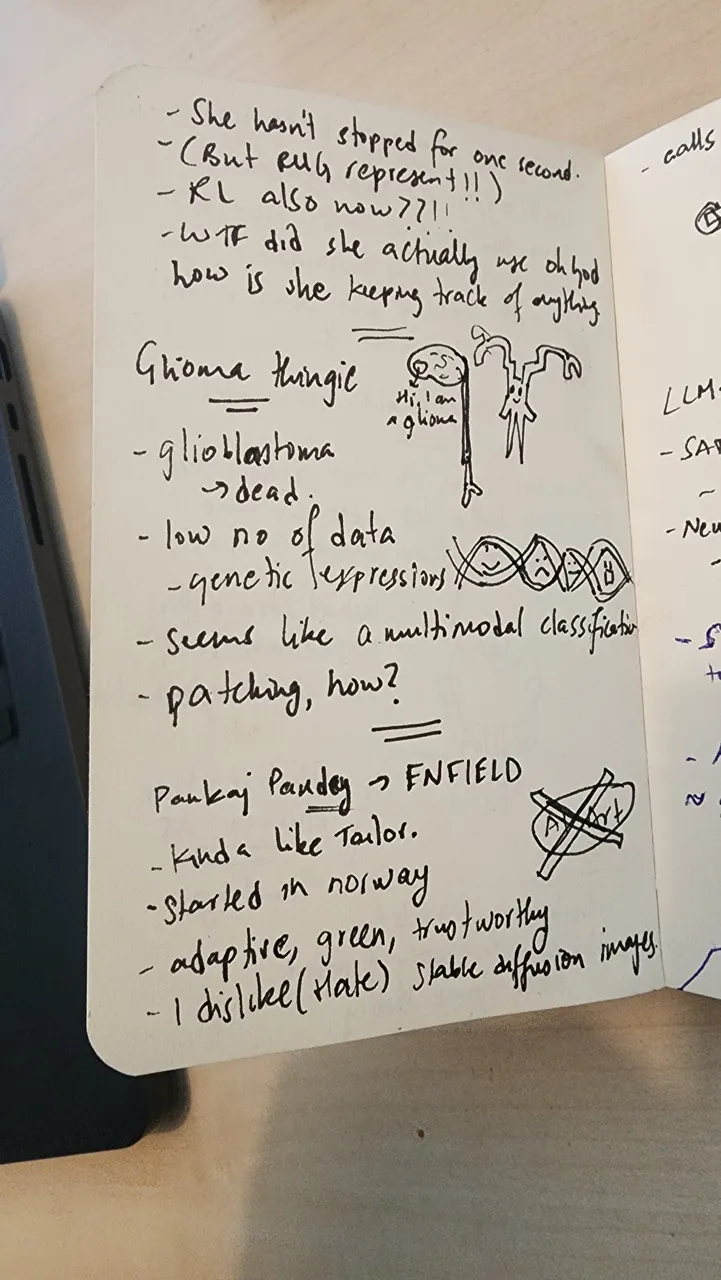 - She hasn't stopped for one second.
- (But RUG represent!!)
- RL also now??!!
- WTF did she actually use oh god
how is she keeping track of anything
Glioma thingie
Hi, I am
a glioma
- glioblastoma
→ dead.
- low no of data
- genetic expressions
- seems like a multimodal classification
- patching, how?
Pankaj Pandey → ENFIELD
- Kinda like Tailor.
- Started in norway
- adaptive, green, trustworthy
- I dislike (Hate) stable diffusion images.
AI Art
- calls
LLM